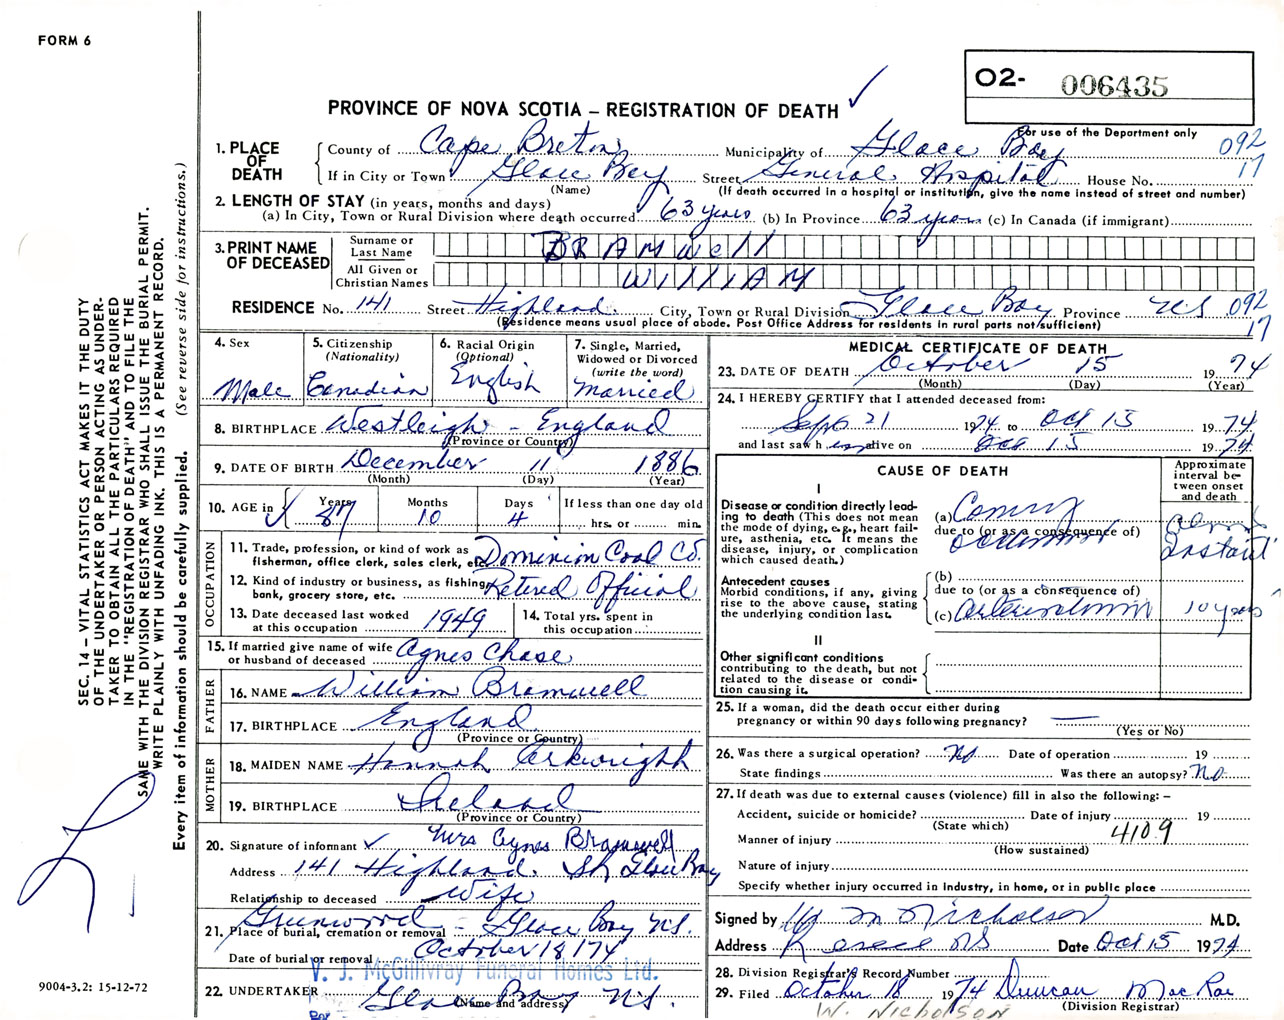 FORM 6
O2- 006435
PROVINCE OF NOVA SCOTIA – REGISTRATION OF DEATH ✓
For use of the Department only
092
17
1. PLACE OF DEATH
County of Cape Breton Municipality of Glace Bay
If in City or Town Glace Bay Street General Hospital House No.
(Name) (If death occurred in a hospital or institution, give the name instead of street and number)
2. LENGTH OF STAY (in years, months and days)
(a) In City, Town or Rural Division where death occurred 63 years (b) In Province 63 years (c) In Canada (if immigrant)
3. PRINT NAME OF DECEASED
Surname or Last Name BRAMWEll
All Given or Christian Names WIllIAM
RESIDENCE No. 141 Street Highland City, Town or Rural Division Glace Bay Province NS 092
17
(Residence means usual place of abode. Post Office Address for residents in rural parts not sufficient)
4. Sex
Male
5. Citizenship
(Nationality)
Canadian
6. Racial Origin
(Optional)
English
7. Single, Married,
Widowed or Divorced
(write the word)
Married
8. BIRTHPLACE Westleigh - England
(Province or Country)
9. DATE OF BIRTH December 11 1886
(Month) (Day) (Year)
10. AGE in
Years 87
Months 10
Days 4
If less than one day old
hrs. or min.
OCCUPATION
11. Trade, profession, or kind of work as
fisherman, office clerk, sales clerk, etc. Dominion Coal Co.
12. Kind of industry or business, as fishing,
bank, grocery store, etc. Retired Official
13. Date deceased last worked
at this occupation 1949
14. Total yrs. spent in
this occupation
15. If married give name of wife
or husband of deceased Agnes Chase
FATHER
16. NAME William Bramwell
17. BIRTHPLACE England
(Province or Country)
MOTHER
18. MAIDEN NAME Hannah Arkwright
19. BIRTHPLACE Ireland
(Province or Country)
20. Signature of informant ✓ Mrs Agnes Bramwell
Address 141 Highland St Glace Bay
Relationship to deceased Wife
21. Place of burial, cremation or removal Greenwood - Glace Bay N.S.
Date of burial or removal October 18 174
V. J. McGillivray Funeral Homes Ltd.
22. UNDERTAKER Glace Bay N.S.
(Name and address)
MEDICAL CERTIFICATE OF DEATH
23. DATE OF DEATH October 15 19 74
(Month) (Day) (Year)
24. I HEREBY CERTIFY that I attended deceased from:
Sept 21 1974 to Oct 15 19 74
and last saw h im alive on Oct 15 19 74
CAUSE OF DEATH
Approximate
interval be-
tween onset
and death
I
Disease or condition directly lead-
ing to death (This does not mean
the mode of dying, e.g., heart fail-
ure, asthenia, etc. It means the
disease, injury, or complication
which caused death.)
(a)
due to (or as a consequence of)
Antecedent causes
Morbid conditions, if any, giving
rise to the above cause, stating
the underlying condition last.
(b)
due to (or as a consequence of)
(c) 10 years
II
Other significant conditions
contributing to the death, but not
related to the disease or condi-
tion causing it.
25. If a woman, did the death occur either during
pregnancy or within 90 days following pregnancy? —
(Yes or No)
26. Was there a surgical operation? No Date of operation 19
State findings Was there an autopsy? No
27. If death was due to external causes (violence) fill in also the following: –
Accident, suicide or homicide? Date of injury 19
(State which)
4109
Manner of injury
(How sustained)
Nature of injury
Specify whether injury occurred in Industry, in home, or in public place
Signed by M Nicholson M.D.
Address NS Date Oct 15 1974
28. Division Registrar's Record Number
29. Filed October 18 1974 Duncan MacRae
(Division Registrar)
W. NICHOLSON
SEC. 14. VITAL STATISTICS ACT MAKES IT THE DUTY
OF THE UNDERTAKER OR PERSON ACTING AS UNDER-
TAKER TO OBTAIN ALL THE PARTICULARS REQUIRED
IN THE "REGISTRATION OF DEATH" AND TO FILE THE
SAME WITH THE DIVISION REGISTRAR WHO SHALL ISSUE THE BURIAL PERMIT.
WRITE PLAINLY WITH UNFADING INK. THIS IS A PERMANENT RECORD.
Every item of information should be carefully supplied. (See reverse side for instructions.)
9004-3.2: 15-12-72